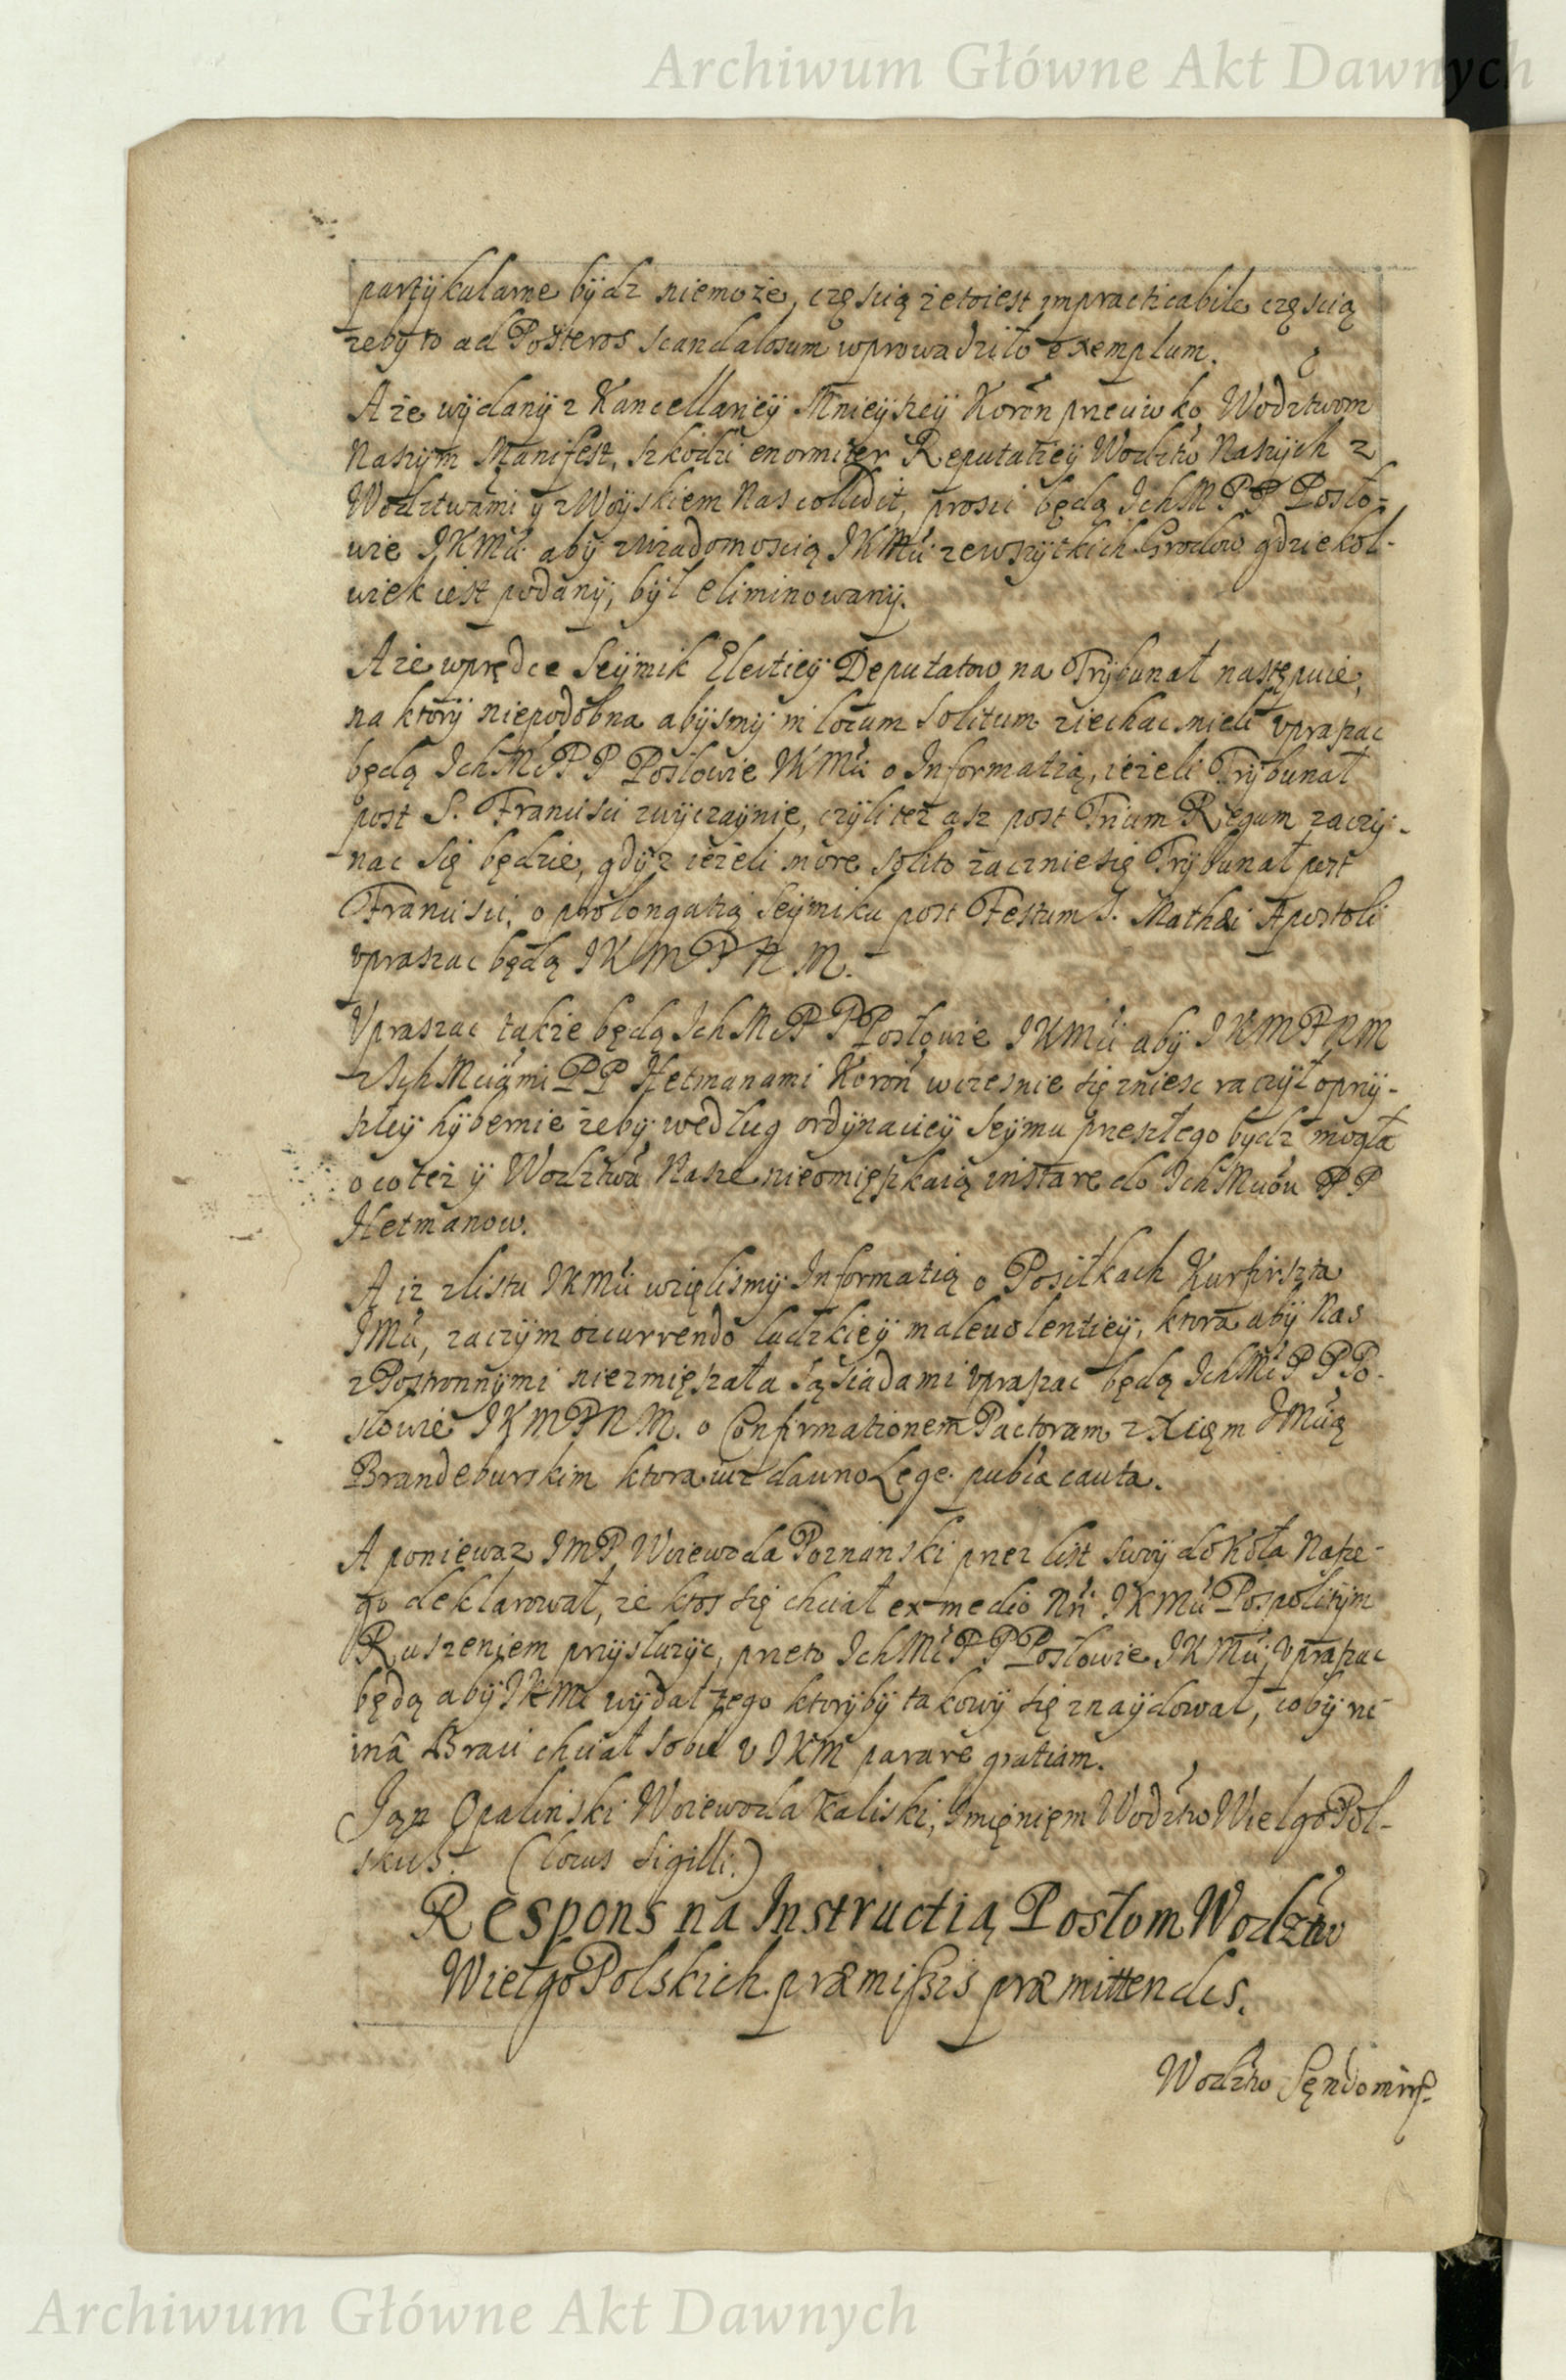 Archiwum Główne Akt Dawnych
partÿkularne bÿdz niemoże, częscią żetoiest impracticabile częscią
żebÿ to ad Posteros scandalosum wprowadziło exemplum.
A że wÿdanÿ z Kancellarieÿ Mnieÿszeÿ Koron przeciwko Wodztwom
Naszÿm Manifest, szkodzi enormiter Reputatieÿ Wodztw Naszÿch z
Wodztwami ÿ z Woÿskiem Nas collidit, prosić będą IchM PP Posło-
wie IKMci abÿ zwiadomoscią IKMci zewszÿtkich Grodow gdziekol-
wiek iest podanÿ, bÿł eliminowanÿ.
A że wprędce Seÿmik Electieÿ Deputatow na Trÿbunał następuie,
na ktorÿ niepodobna abÿsmÿ in locum solitum ziechac mieli vpraszac
będą IchMci PP Posłowie IKMci o Informatią, ieżeli Trÿbunał
post S. Francisci zwÿczaÿnie, czÿli też asz post Trium Regum zaczÿ-
nac się będzie, gdÿz ieżeli more solito zacznie się Trÿbunał post
Francisci, o prolongatią Seÿmiku post Festum S. Mathæi Apostoli
vpraszac będą IKMPNM.
Vpraszac także będą IchMci PP Posłowie IKMci abÿ IKMPNM
z IchMciami PP Hetmanami Koron wczesnie się zniesc raczÿł oprzÿ-
szłeÿ hÿbernie żebÿ według ordÿnacieÿ Seÿmu przeszłego bÿdz mogła
o co też ÿ Wodztwa Nasze nieomięszkaią instare do IchMciow PP
Hetmanow.
A iz zlistu IKMci wzięlismÿ Informatią o Posiłkach Kurfirszta
IMci, zaczÿm occurrendo ludzkieÿ malevolentieÿ, ktora abÿ Nas
z Postronnÿmi niezmięszała sąsiadami vpraszac będą IchMci PP Po-
słowie IKMPNM. o Confirmationem Pactorum z Xięm IMcią
Brandeburskim ktora iuz dawno Lege publca cauta.
A poniewaz IMP Woiewoda Poznanski przez list swoÿ do Koła Nasze-
go deklarował, że ktos się chciał ex medio Nri IKMci Pospolitÿm
Ruszeniem przÿsłuzÿc, przeto IchMci PP Posłowie IKMci vpraszac
będą abÿ IKMc wÿdał tego ktorÿbÿ takowÿ się znaÿdował, cobÿ ru-
ina Braci chciał sobie v IKM parare gratiam.
Jan Opalinski Woiewoda Kaliski, Imięniem Wodztw WielgoPol-
skich. (locus Sigilli.)
Respons na Instructią Posłom Wodztw
WielgoPolskich præmissis præmittendis.
Wodztwo Sędomirs.
Archiwum Główne Akt Dawnych